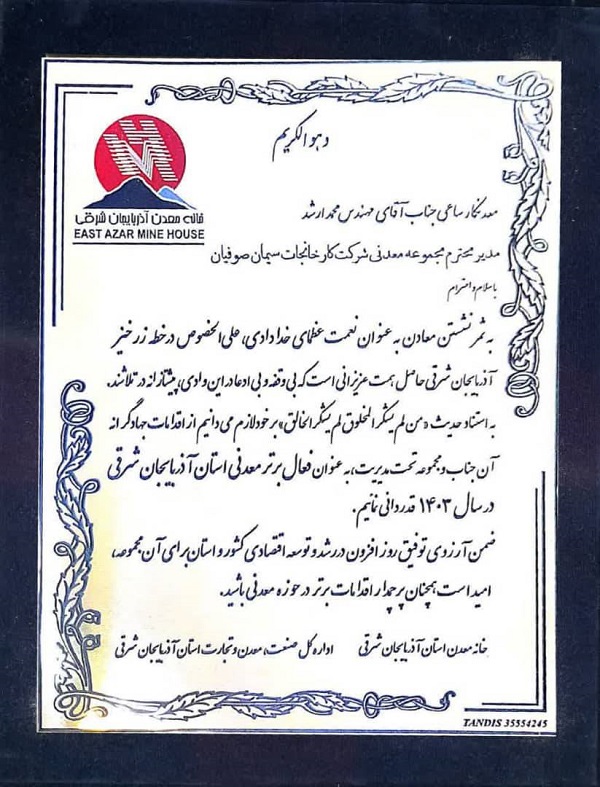 و هو الکریم
خانه معدن آذربایجان شرقی
EAST AZAR MINE HOUSE
معدنکار ساعی جناب آقای مهندس محمد ارشد
مدیر محترم مجموعه معدنی شرکت کارخانجات سیمان صوفیان
با سلام و احترام
به ثمر نشستن معادن به عنوان نعمت عظمای خدادادی، علی الخصوص در خطه زرخیز
آذربایجان شرقی حاصل همت عزیزانی است که بی وقفه و بی ادعا در این وادی، پیشتازانه در تلاشند.
به استناد حدیث «من لم یشکر المخلوق لم یشکر الخالق» بر خود لازم می دانیم از اقدامات جهادگرانه
آن جناب و مجموعه تحت مدیریت، به عنوان فعال برتر معدنی استان آذربایجان شرقی
در سال ۱۴۰۳ قدردانی نمایم.
ضمن آرزوی توفیق روز افزون در رشد و توسعه اقتصادی کشور و استان برای آن مجموعه،
امید است همچنان پرچمدار اقدامات برتر در حوزه معدنی باشید.
خانه معدن استان آذربایجان شرقی اداره کل صنعت، معدن و تجارت استان آذربایجان شرقی
TANDIS 35554245